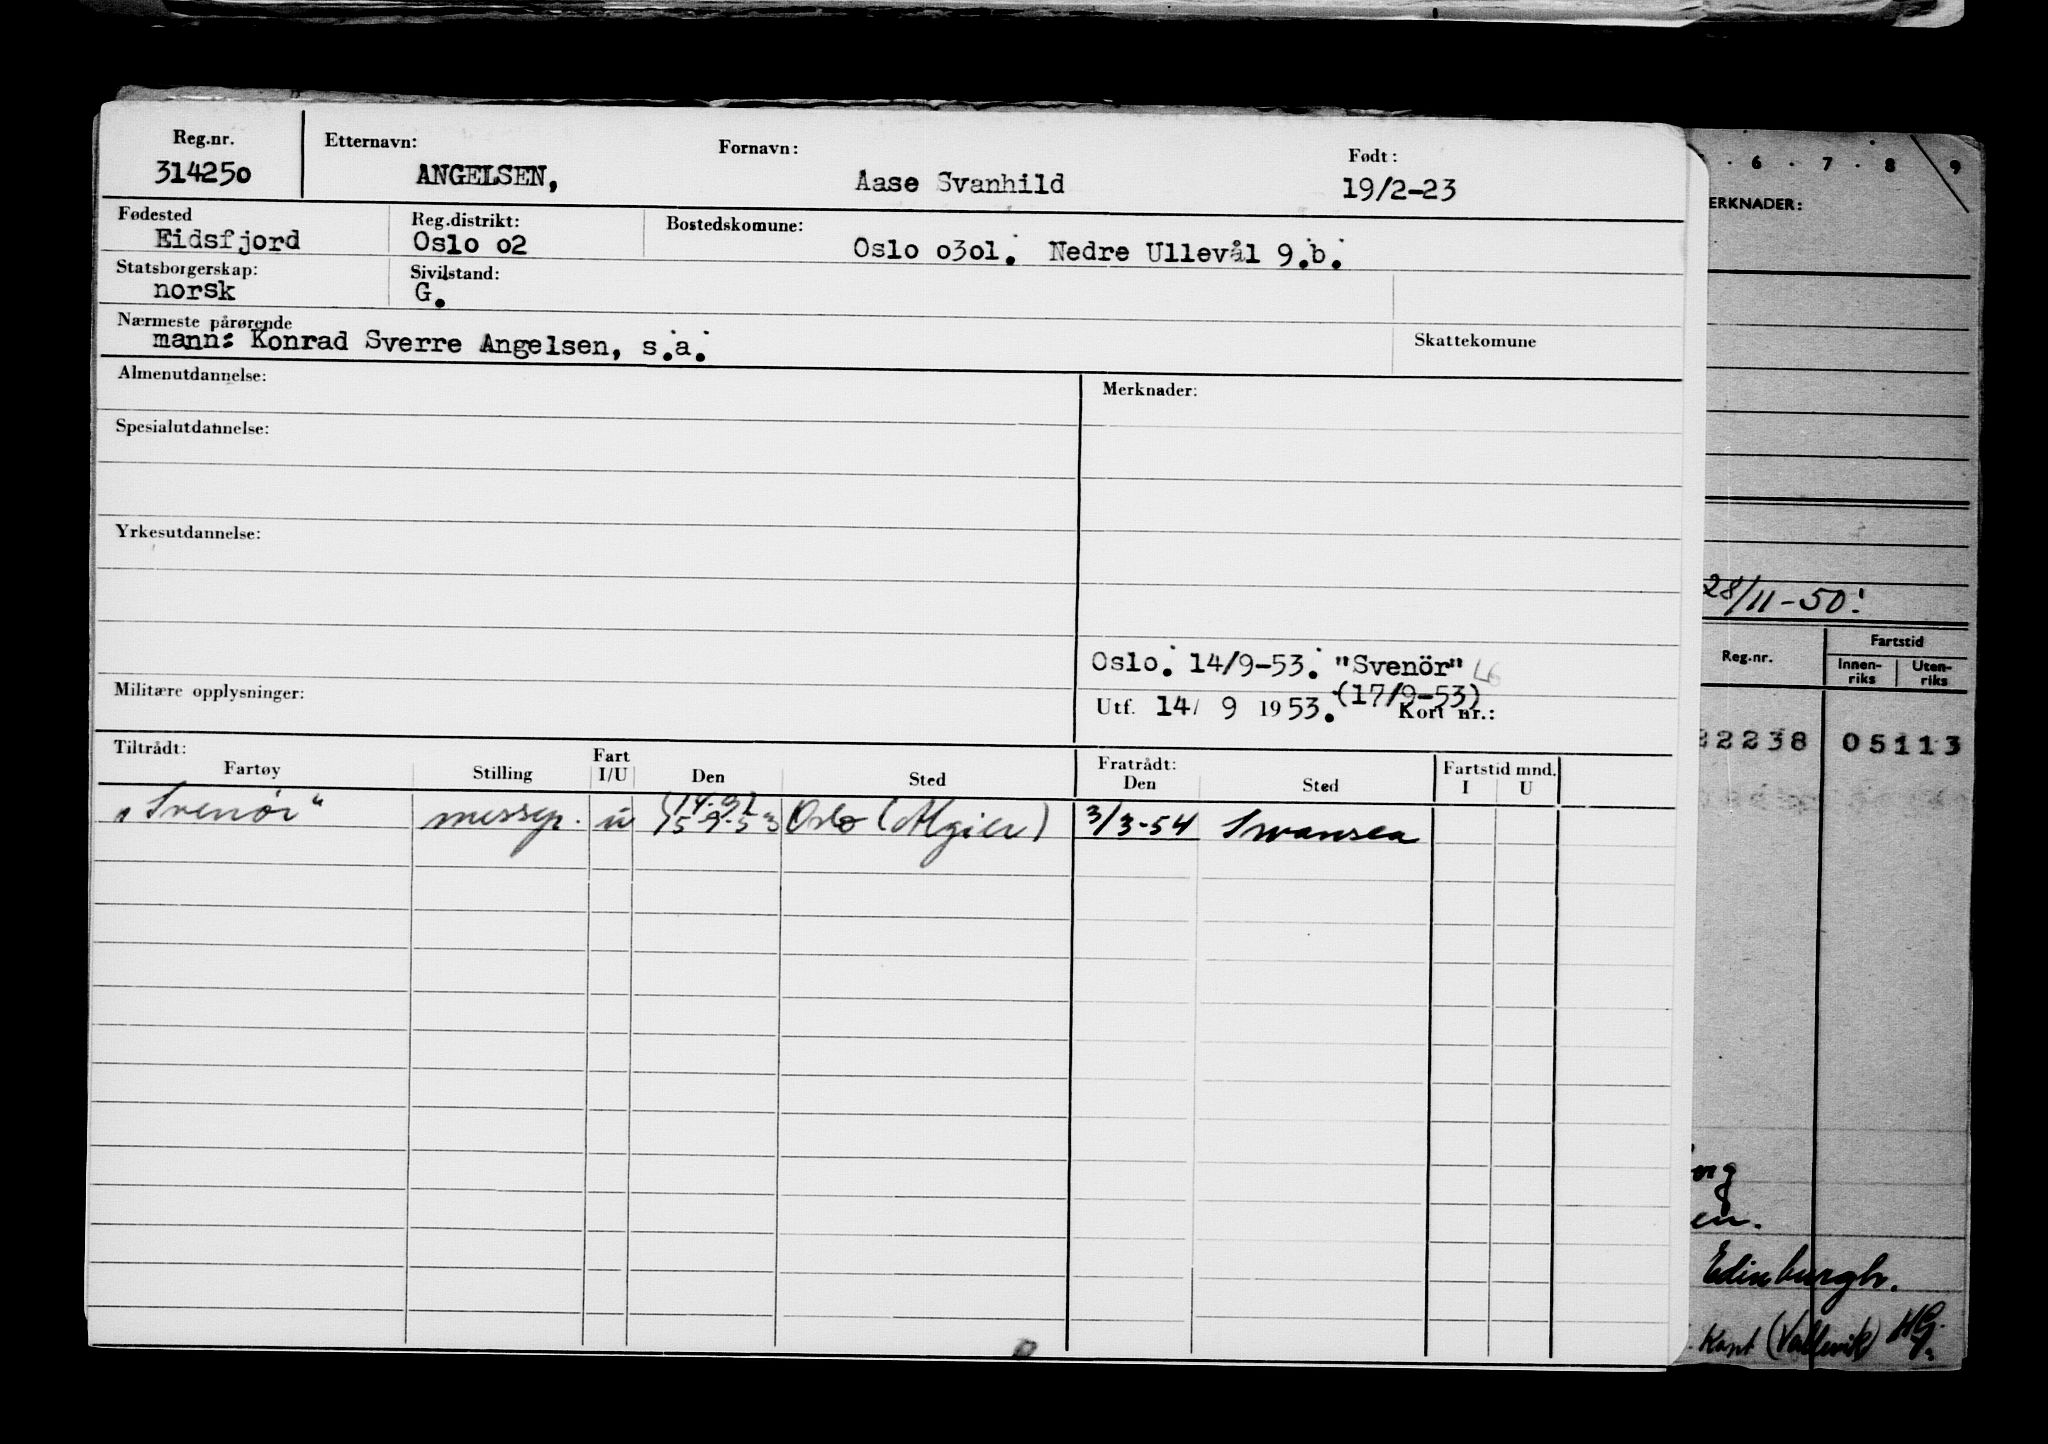 Reg.nr. Etternavn: Fornavn: Født:
314250 ANGELSEN, Aase Svanhild 19/2-23
Fødested Reg.distrikt: Bostedskomune:
Eidsfjord Oslo o2 Oslo o3o1. Nedre Ullevål 9.b.
Statsborgerskap: Sivilstand:
norsk G.
Nærmeste pårørende Skattekomune
mann: Konrad Sverre Angelsen, s.a.
Almenutdannelse: Merknader:
Spesialutdannelse:
Yrkesutdannelse:
Oslo. 14/9-53. "Svenör"
(17/9-53)
Militære opplysninger: Utf. 14/ 9 1953. Kort nr.:
Tiltrådt: Fratrådt:
Fartøy Stilling Fart I/U Den Sted Den Sted Fartstid mnd. I U
„Svenör" messep. u Oslo (Algier) 3/3-54 Swansea
6 · 7 · 8 9
ERKNADER:
28/11-50.
Reg.nr. Fartstid
Innen-riks Uten-riks
22238 05113
en.
Edinburgh.
Kont (Vallevik) HG.